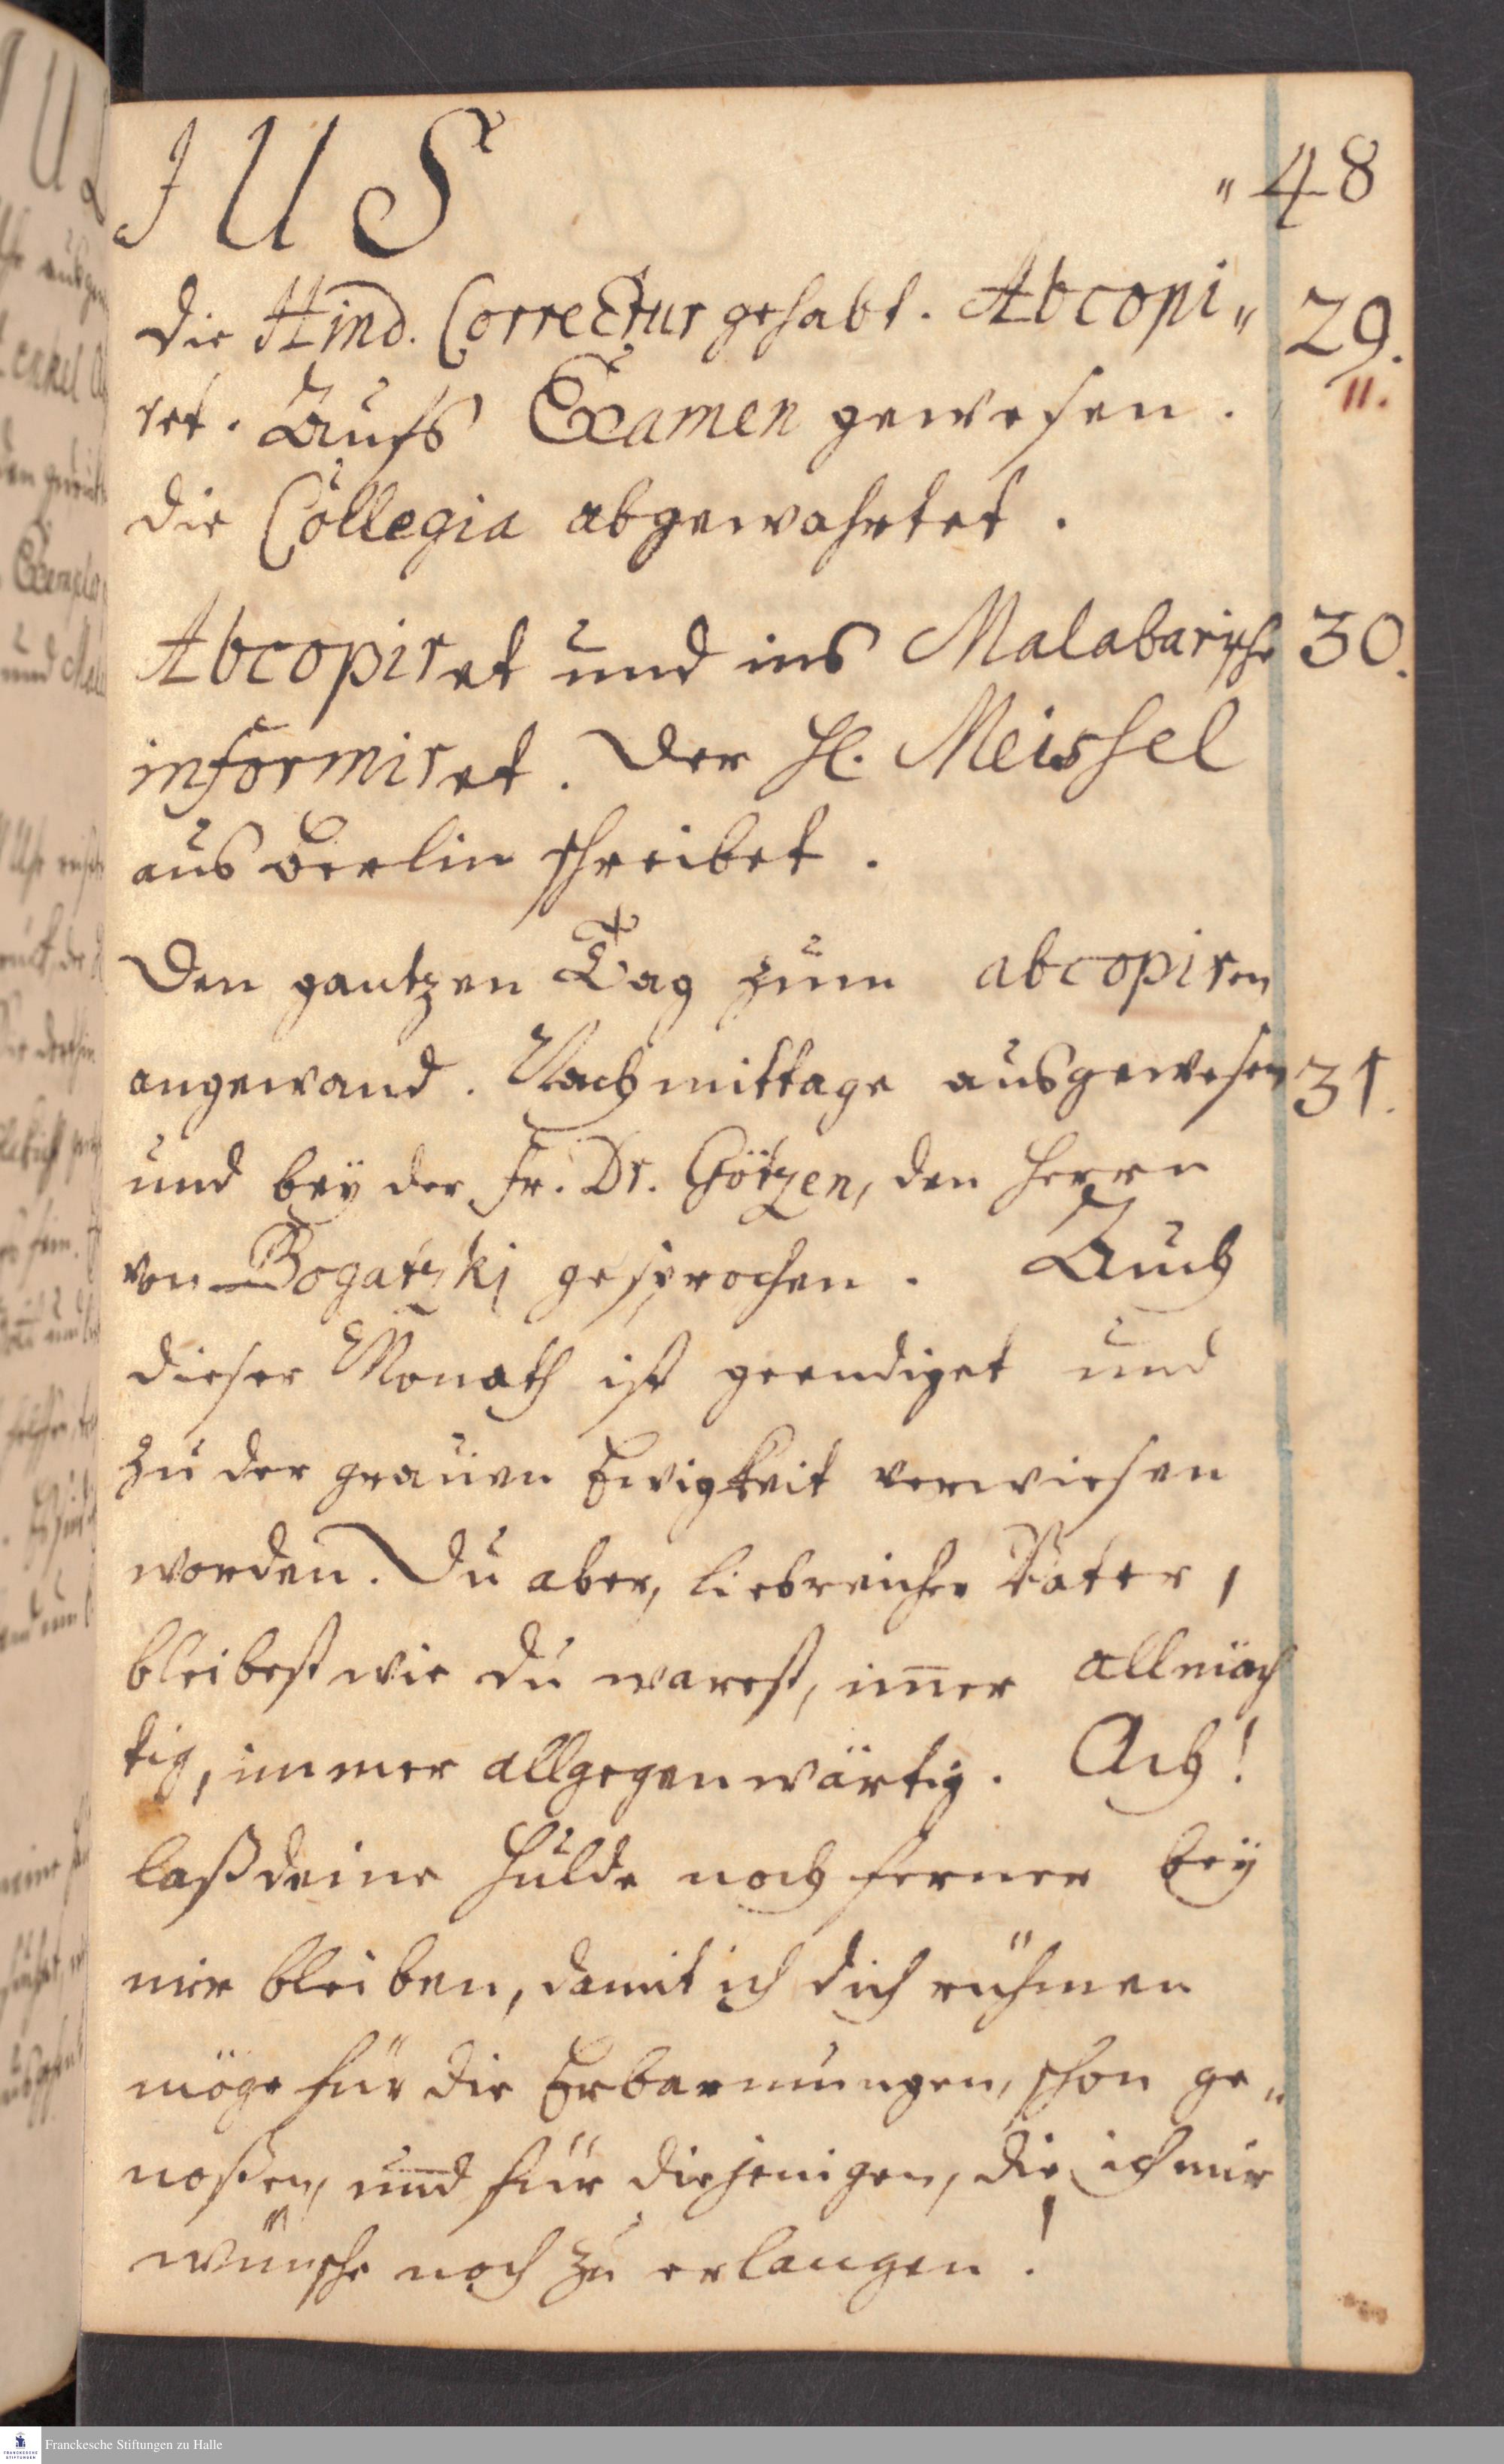 JUS „48
die Hind. Correctur gehabt. Abcopi„ 29.
ret. Aufs Examen gewesen. II.
die Collegia abgewahrtet.
Abcopiret und ins Malabarische 30.
informiret. Der H. Meissel
aus Berlin schreibet.
Den gantzen Tag zum abcopiren
angewand. Nachmittage ausgewesen 31.
und beÿ der Fr. Dr. Götzen, den Herrn
von Bogatzki gesprochen. Auch
dieser Monath ist geendiget und
zu der grauen Ewigkeit verwiesen
worden. Du aber, liebreicher Vater,
bleibest wie du warest, im̅er allmäch
tig, immer allgegenwärtig. Ach!
laß deine Hulde noch ferner beÿ
mir bleiben, damit ich dich rühmen
möge für die Erbarmungen, schon ge„
noßen, und für diejenigen, die ich mir
wünsche noch zu erlangen!
Franckesche Stiftungen zu Halle